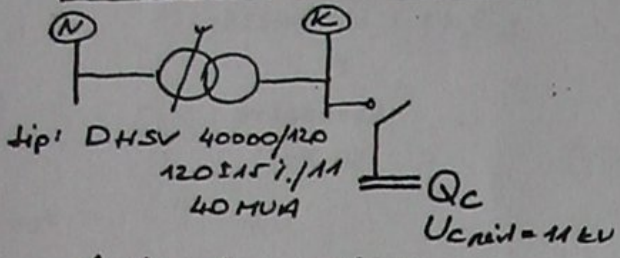 N K
tip: DHSV 40000/120
120±15%/11
40 MVA
Qc
Ucnévl = 11 kV